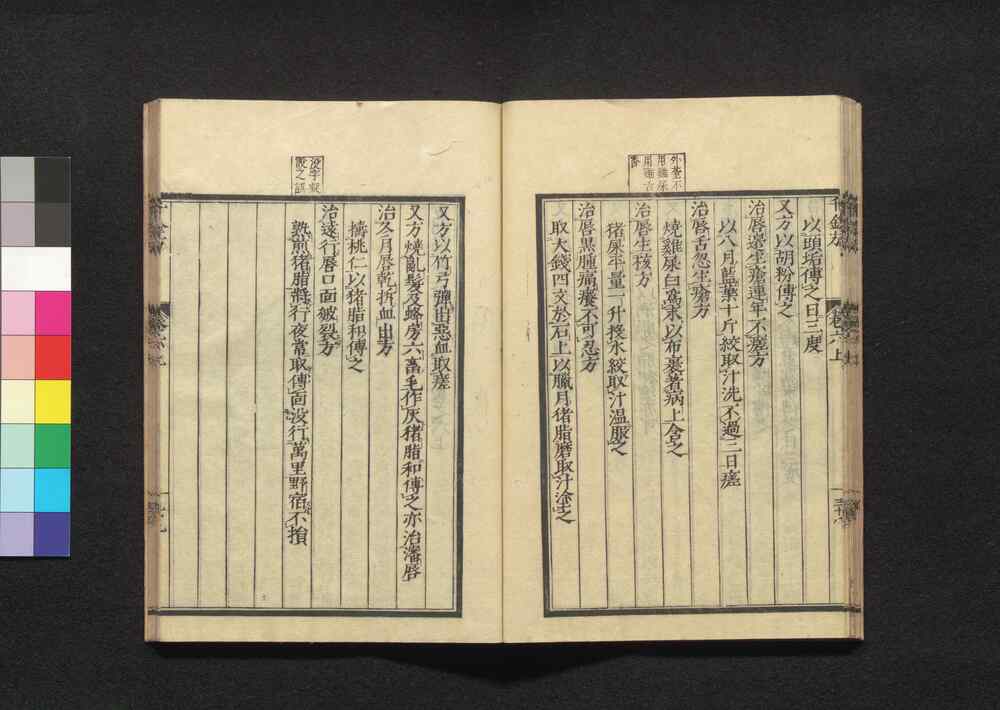 以頭垢傅之日三度
又方以胡粉傅之
治唇邊生瘡連年不瘥方
以八月藍葉十斤絞取汁洗不過三日瘥
治唇舌忽生瘡方
燒雞屎白為末以布裹著病上含之
治唇生核方
猪屎平量一升投水絞取汁温服之
治唇黑腫痛癢不可忍方
取大錢四文於石上以臘月猪脂磨取汁塗之
又方以竹弓彈出惡血取瘥
又方燒亂髮及蜂房六畜毛作灰猪脂和傅之亦治瀋唇
治冬月唇乾拆血出方
擣桃仁以猪脂和傅之
治遠行唇口面皴裂方
熟煎猪脂將行夜常取傅面没行萬里野宿不損
卷六上